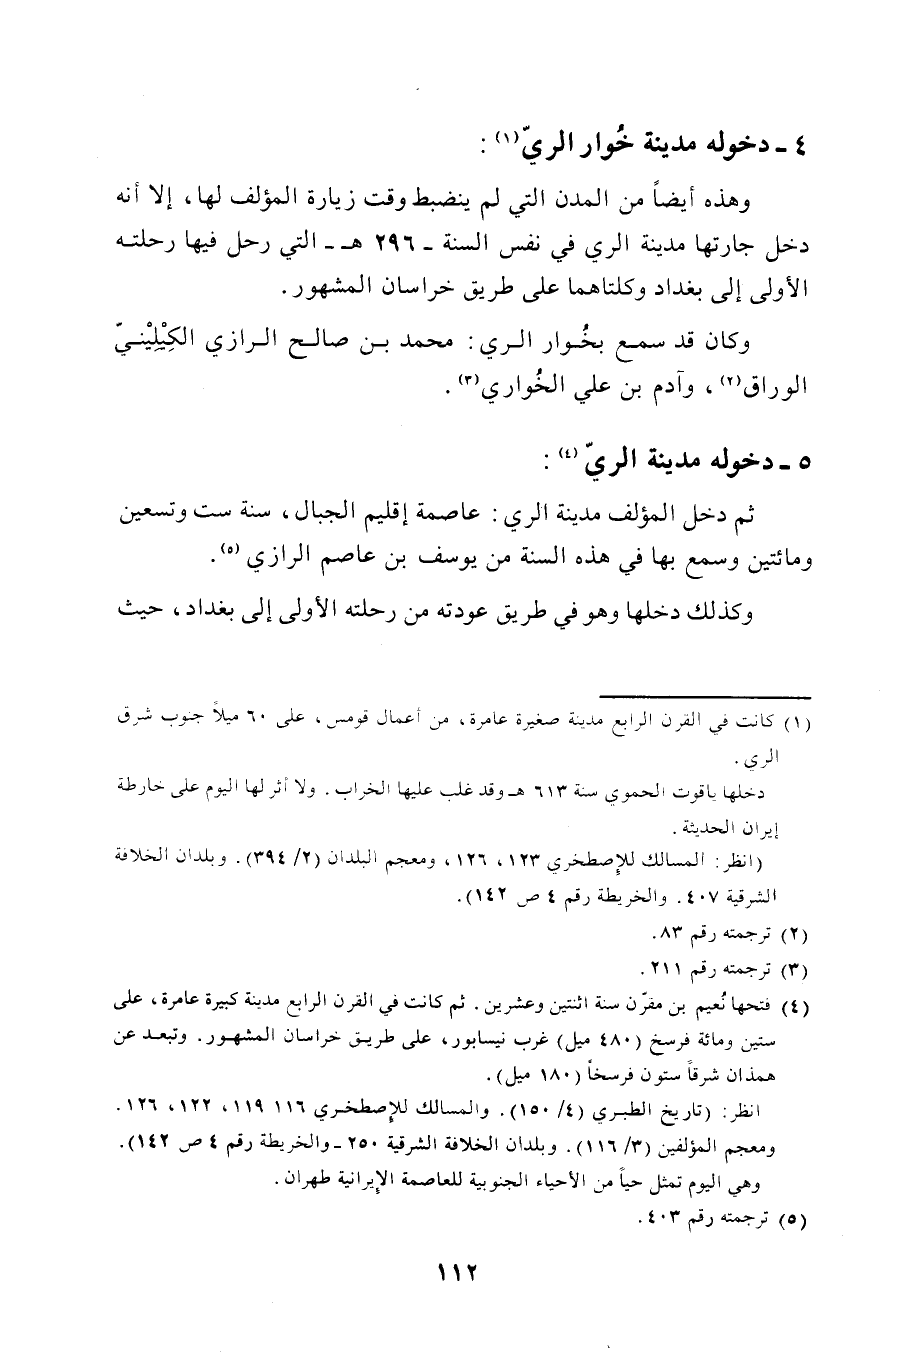 ٤ ـ دخوله مدينة خُوار الريّ(١) :
وهذه أيضاً من المدن التي لم ينضبط وقت زيارة المؤلف لها، إلا أنه
دخل جارتها مدينة الري في نفس السنة ـ ٢٩٦ هـ ـ التي رحل فيها رحلته
الأولى إلى بغداد وكلتاهما على طريق خراسان المشهور.
وكان قد سمع بخُوار الري: محمد بن صالح الرازي الكِيْلِيْنيّ
الوراق(٢)، وآدم بن علي الخُواري(٣).
٥ ـ دخوله مدينة الريّ(٤) :
ثم دخل المؤلف مدينة الري: عاصمة إقليم الجبال، سنة ست وتسعين
ومائتين وسمع بها في هذه السنة من يوسف بن عاصم الرازي(٥).
وكذلك دخلها وهو في طريق عودته من رحلته الأولى إلى بغداد، حيث
(١) كانت في القرن الرابع مدينة صغيرة عامرة، من أعمال قومس، على ٦٠ ميلاً جنوب شرق
الري.
دخلها ياقوت الحموي سنة ٦١٣ هـ وقد غلب عليها الخراب. ولا أثر لها اليوم على خارطة
إيران الحديثة.
(انظر: المسالك للإصطخري ١٢٣، ١٢٦، ومعجم البلدان (٢/ ٣٩٤). وبلدان الخلافة
الشرقية ٤٠٧. والخريطة رقم ٤ ص ١٤٢).
(٢) ترجمته رقم ٨٣.
(٣) ترجمته رقم ٢١١.
(٤) فتحها نُعيم بن مقرّن سنة اثنتين وعشرين. ثم كانت في القرن الرابع مدينة كبيرة عامرة، على
ستين ومائة فرسخ (٤٨٠ ميل) غرب نيسابور، على طريق خراسان المشهور. وتبعد عن
همذان شرقاً ستون فرسخاً (١٨٠ ميل).
انظر: (تاريخ الطبري (٤/ ١٥٠). والمسالك للإصطخري ١١٦ ١١٩، ١٢٢، ١٢٦.
ومعجم المؤلفين (٣/ ١١٦). وبلدان الخلافة الشرقية ٢٥٠ ـ والخريطة رقم ٤ ص ١٤٢).
وهي اليوم تمثل حياً من الأحياء الجنوبية للعاصمة الإيرانية طهران.
(٥) ترجمته رقم ٤٠٣.
١١٢